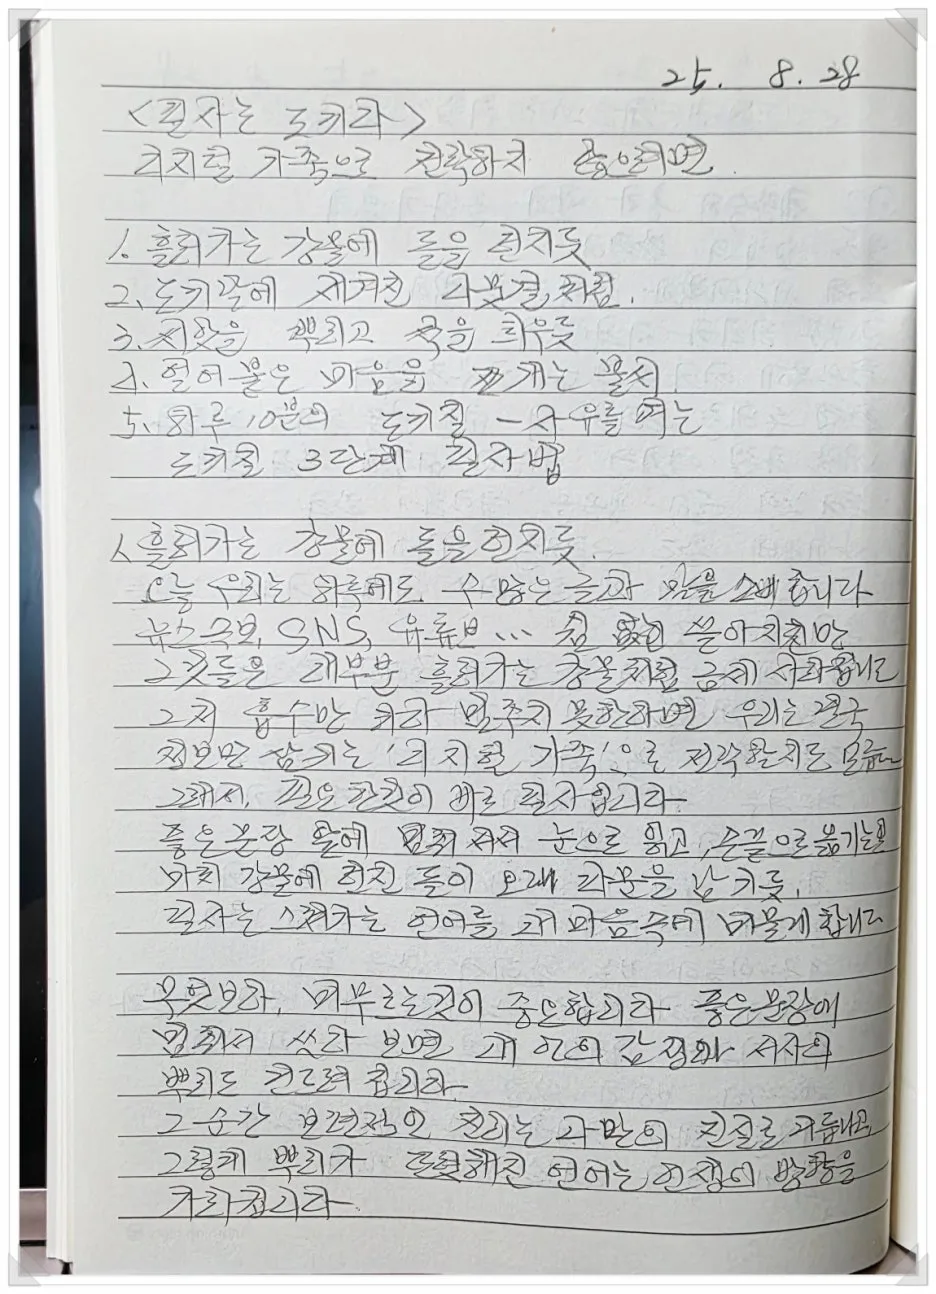 25. 8. 28
<필사는 도끼다>
디지털 가축으로 전락하지 않으려면.
1. 흘러가는 강물에 돌을 던지듯
2. 도끼자국에 새겨진 나뭇결처럼.
3. 씨앗을 뿌리고 싹을 틔우듯
4. 얼어붙은 마음을 깨는 문장
5. 하루 10분의 도끼질 - 사유를 여는
도끼질 3단계 필사법
1. 흘러가는 강물에 돌을 던지듯.
오늘 우리는 하루에도 수많은 글과 말을 소비합니다
뉴스속보, SNS, 유튜브... 쉼 없이 쏟아지지만
그것들은 대부분 흘러가는 강물처럼 금세 사라집니다
그저 흡수만 하다 멈추지 못한다면 우리는 결국
정보만 삼키는 '디지털 가축'으로 전락할지도 모릅니다
그래서, 필요한 것이 바로 필사입니다.
좋은 문장 앞에 멈춰 서서 눈으로 읽고, 손끝으로 옮기는 일
마치 강물에 던진 돌이 오래 파문을 남기듯,
필사는 스쳐가는 언어를 내 마음속에 머물게 합니다
무엇보다, 머무르는 것이 중요합니다 좋은 문장에
멈춰서 쓰다 보면 내 안의 감정과 서사의
뿌리도 건드려집니다.
그 순간 보편적인 진리는 나만의 진실로 거듭나고,
그렇게 뿌리가 또렷해진 언어는, 인생의 방향을
가리킵니다.